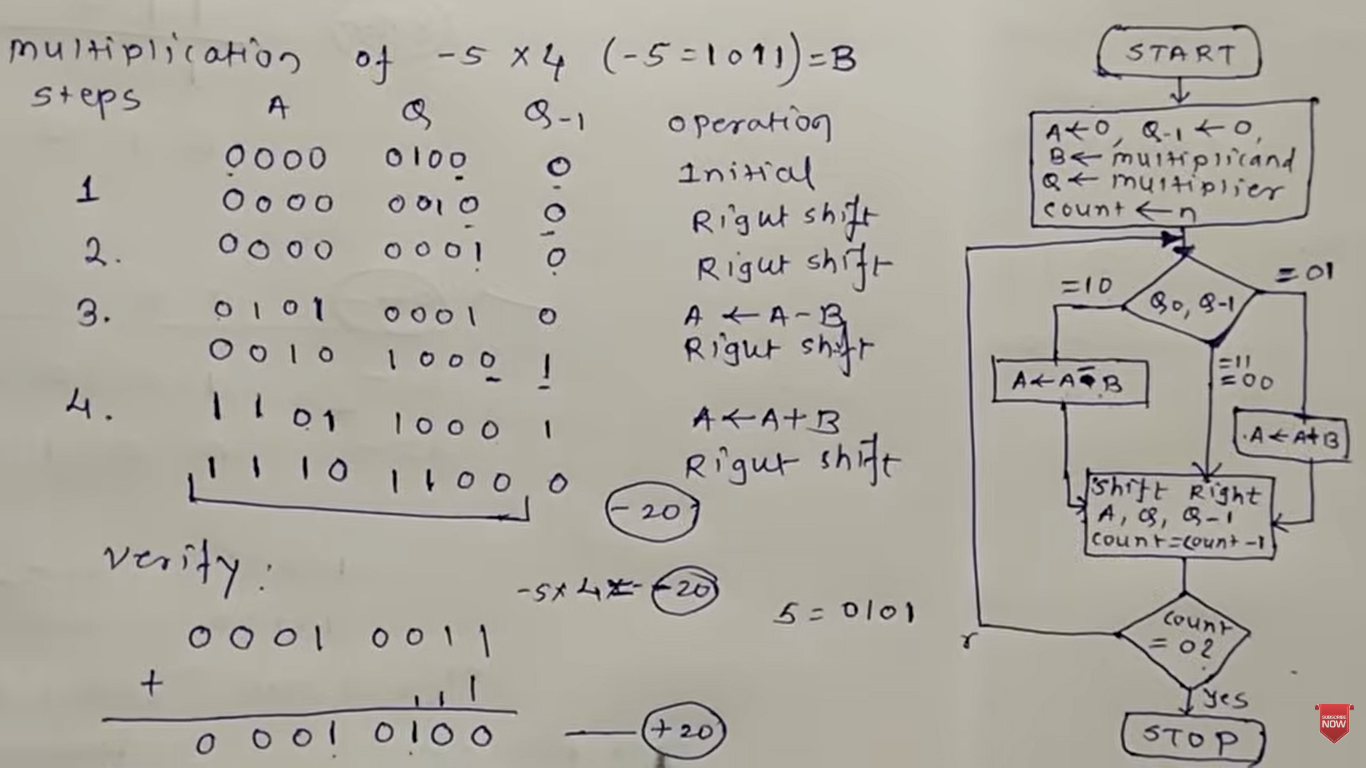 multiplication of -5 × 4 (-5 = 1011) = B
steps A Q Q-1 operation
0000 0100 0 Initial
1 0000 0010 0 Right shift
2. 0000 0001 0 Right shift
3. 0101 0001 0 A ← A - B
0010 1000 1 Right shift
4. 1101 1000 1 A ← A + B
1110 1100 0 Right shift
-20
verify:
-5 × 4 = -20
5 = 0101
0001 0011
+ 1
0001 0100 — +20
START
A ← 0, Q-1 ← 0,
B ← multiplicand
Q ← multiplier
count ← n
Q0, Q-1
=10
=01
=11
=00
A ← A - B
A ← A + B
Shift Right
A, Q, Q-1
count = count - 1
count
= 0?
yes
STOP
SUBSCRIBE
NOW